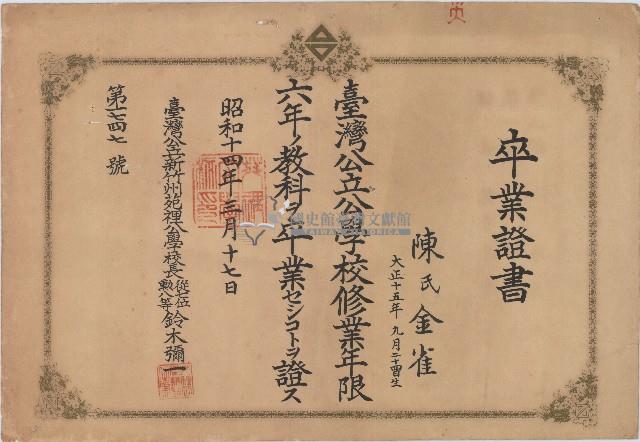 卒業證書
陳氏金雀
大正十五年九月二十四日生
臺灣公立公學校修業年限
六年ノ教科ヲ卒業セシコトヲ證ス
昭和十四年三月十七日
臺灣公立新竹州苑裡公學校長
從七位
勲八等
鈴木彌一
第一七四七號
國史館臺灣文獻館
TAIWAN HISTORICA